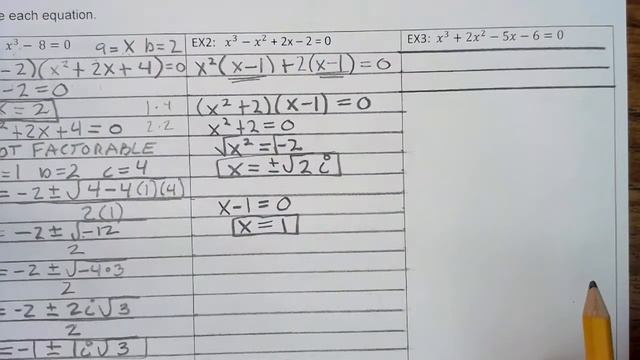 e each equation.
x³ - 8 = 0 a = x b = 2
- 2)(x² + 2x + 4) = 0
- 2 = 0
x = 2
1 · 4
² + 2x + 4 = 0
2 · 2
OT FACTORABLE
= 1 b = 2 c = 4
= -2 ± √4 - 4(1)(4)
2(1)
= -2 ± √-12
2
= -2 ± √-4·3
2
= -2 ± 2i√3
2
= -1 ± 1i√3
EX2: x³ − x² + 2x − 2 = 0
x²(x - 1) + 2(x - 1) = 0
(x² + 2)(x - 1) = 0
x² + 2 = 0
√x² = √-2
x = ±√2 i
x - 1 = 0
x = 1
EX3: x³ + 2x² − 5x − 6 = 0